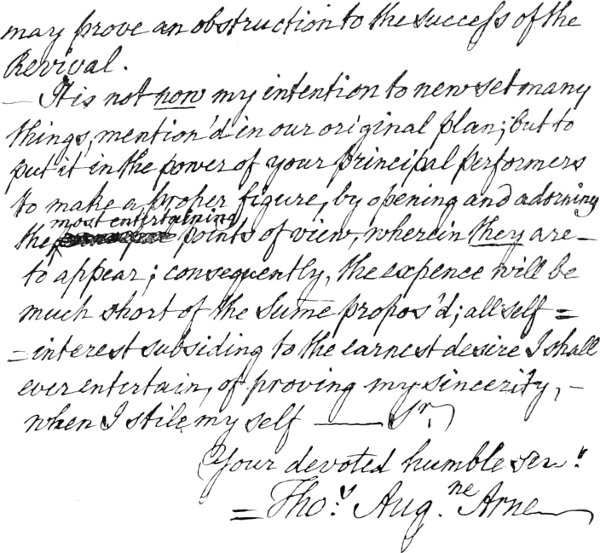 may prove an obstruction to the success of the
Revival.
— It is not now my intention to new set many
things, mention'd in our original plan; but to
put it in the power of your principal performers
to make a proper figure, by opening and adorning
most entertaining
the points of view, wherein they are
to appear; consequently, the expence will be
much short of the sume propos'd; all self =
= interest subsiding to the earnest desire I shall
ever entertain, of proving my sincerity, –
when I stile my self —— Sr.
Your devoted humble Servt.
= Thos. Augne. Arne